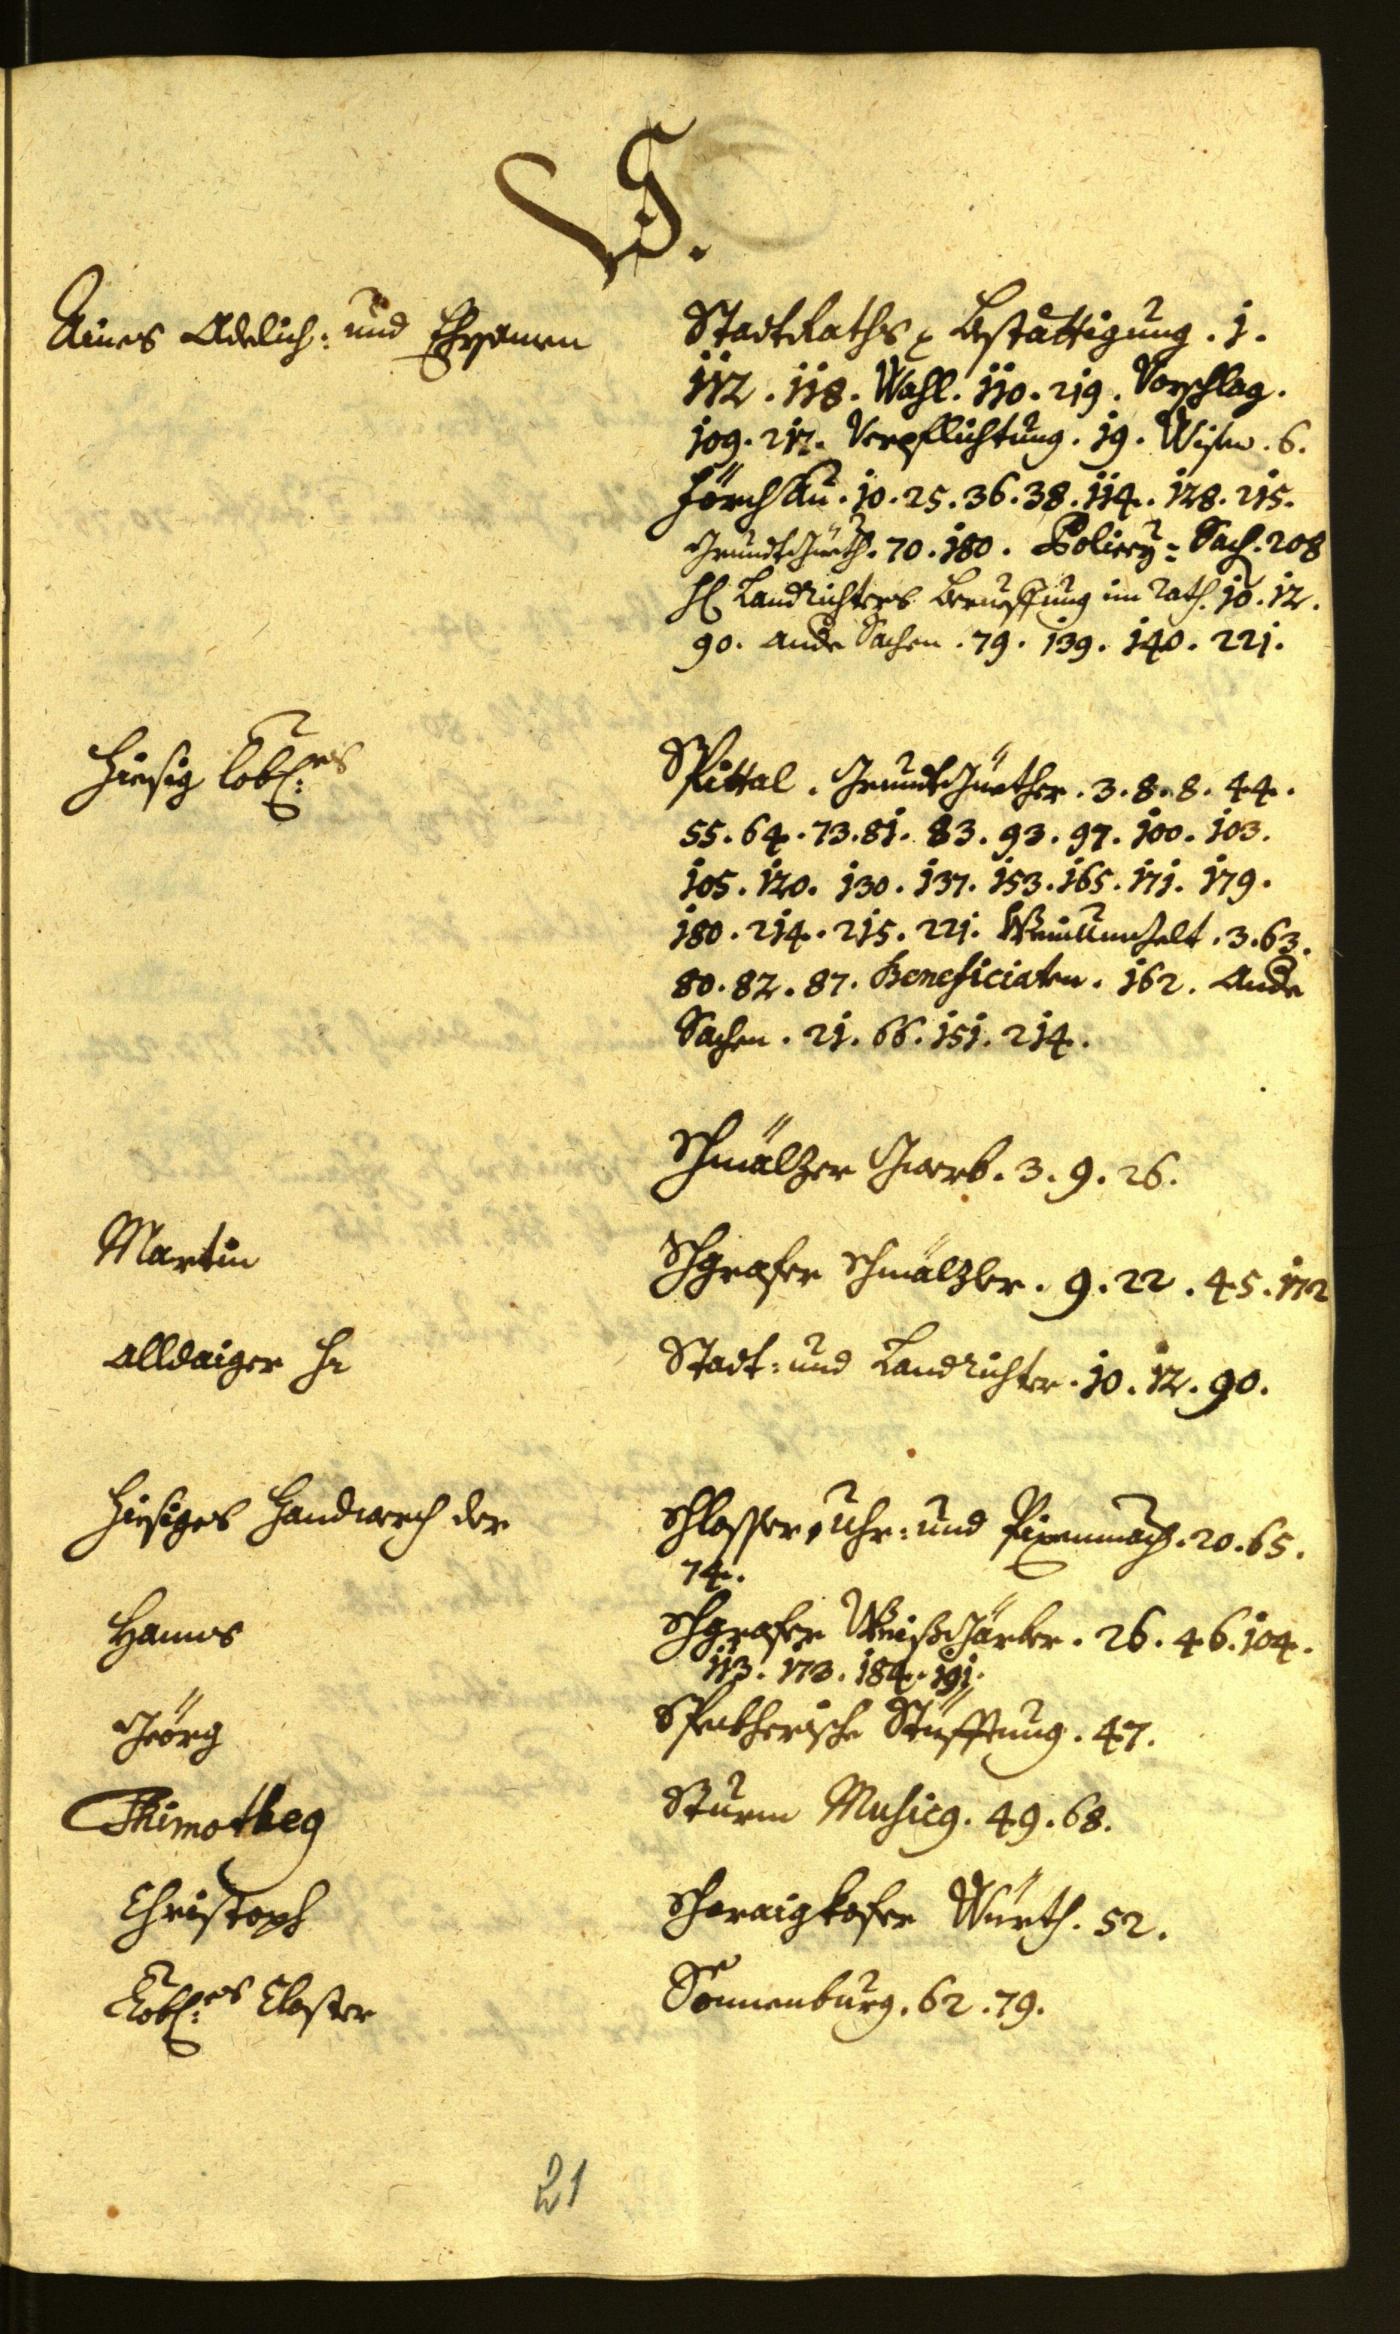 S.
Aines Adelich: und Ehrsamen StadtRaths Bestättigung . 1 .
112 . 118 . Wahl . 110 . 219 . Vorschlag .
109 . 217 . Verpflichtung . 19 . Wisen . 6 .
. 10 . 25 . 36 . 38 . 114 . 128 . 215 .
70 . 180 . Policey= Sach . 208
H Landrichters Beruffung im Rath . 10 . 12 .
90 . ande Sachen . 79 . 139 . 140 . 221 .
Hiesig lobl:es Spittal . 3 . 8 . 8 . 44 .
55 . 64 . 73 . 81 . 83 . 93 . 97 . 100 . 103 .
105 . 120 . 130 . 137 . 153 . 165 . 171 . 179 .
180 . 214 . 215 . 221 . 3 . 63 .
80 . 82 . 87 . Beneficiaten . 162 . Ande
Sachen . 21 . 66 . 151 . 214 .
Schmälzer Gwerb . 3 . 9 . 26 .
Martin Schgrafer Schmälzler . 9 . 22 . 45 . 172
Alldaiger Hr Stadt: und Landrichter . 10 . 12 . 90 .
Hiesiges Handwerch der Schlosser, Uhr: und Pixenmach . 20 . 65 .
74 .
Hanns Schgrafer Weißgärber . 26 . 46 . 104 .
113 . 173 . 184 . 191 .
Geörg Stüfftung . 47 .
Thimotheg Sturm Musicg . 49 . 68 .
Christoph Schraigkofer Würth . 52 .
Lobl:es Closter Sonnenburg . 62 . 79 .
21